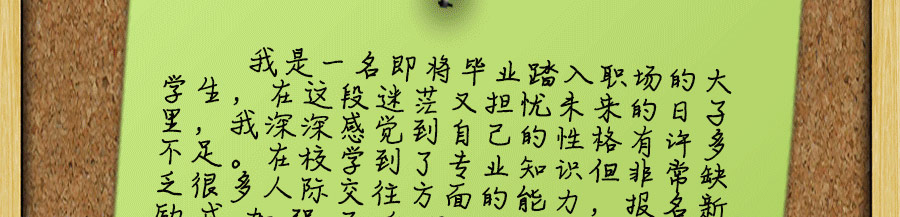 我是一名即将毕业踏入职场的大
学生，在这段迷茫又担忧未来的日子
里，我深深感觉到自己的性格有许多
不足。在校学到了专业知识但非常缺
乏很多人际交往方面的能力，报名新